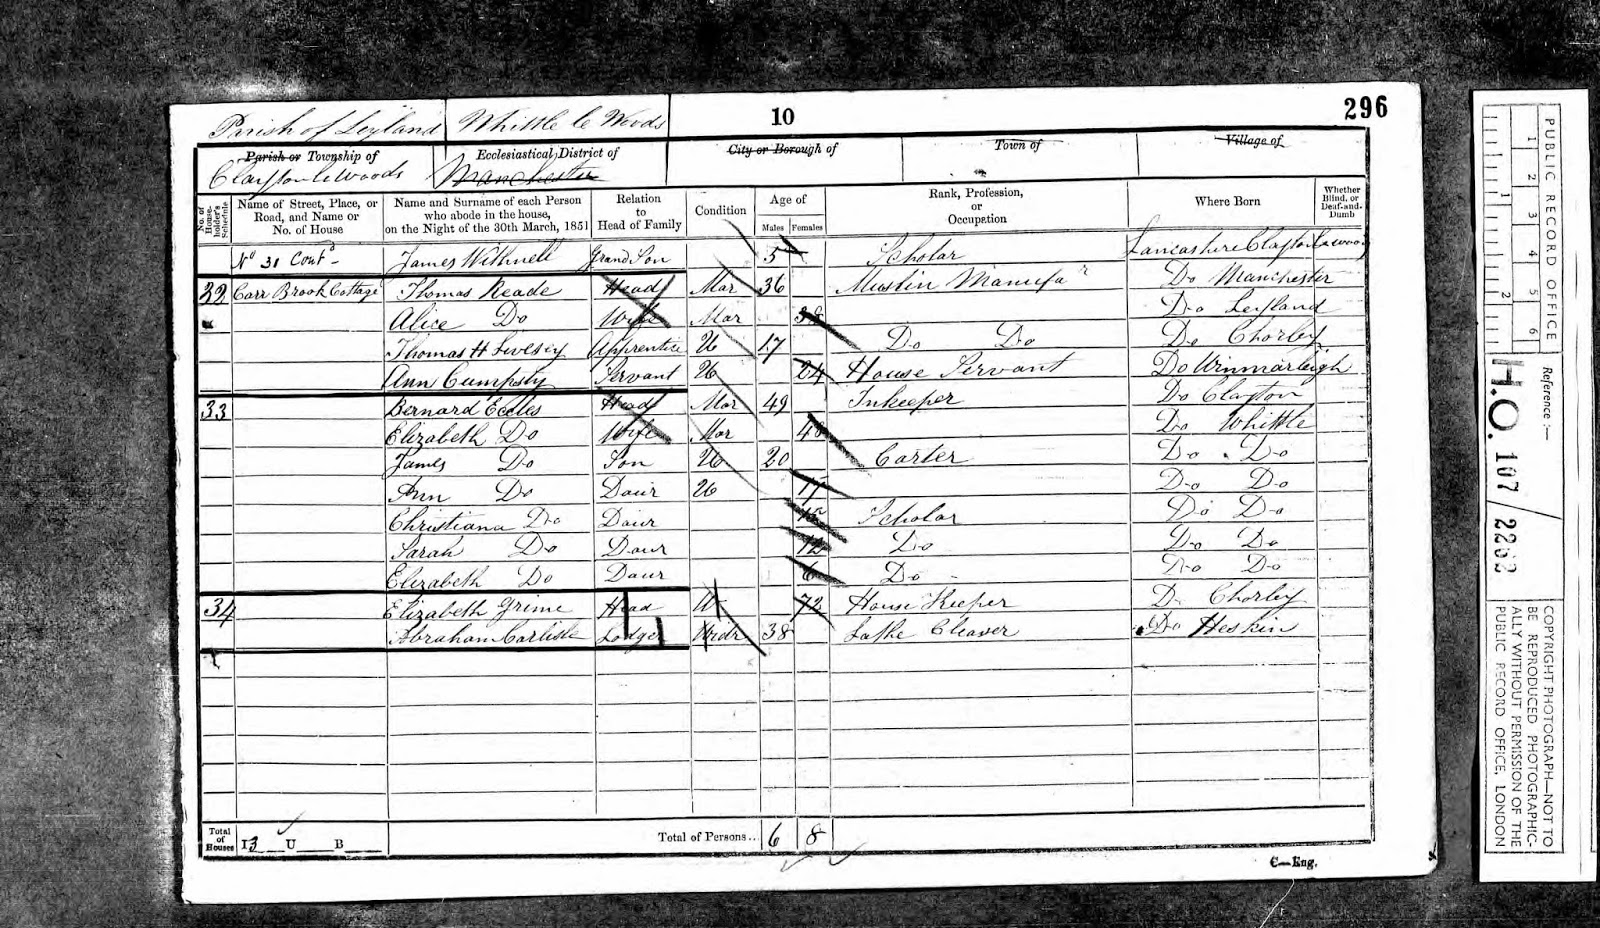 296
10
Parish of Leyland Whittle le Woods
Parish or Township of Ecclesiastical District of City or Borough of Town of Village of
Clayton le woods Manchester
No. of House-holder's Schedule
Name of Street, Place, or Road, and Name or No. of House
Name and Surname of each Person who abode in the house, on the Night of the 30th March, 1851
Relation to Head of Family
Condition
Age of
Males Females
Rank, Profession, or Occupation
Where Born
Whether Blind, or Deaf-and-Dumb
No 31 Contd James Withnell Grand Son 5 Scholar Lancashire Clayton le woods
32 Carr Brook Cottage Thomas Reade Head Mar 36 Muslin Manufr Do Manchester
Alice Do Wife Mar 38 Do Leyland
Thomas H Livesey Apprentice U 17 Do Do Do Chorley
Ann Cumpsty Servant U 24 House Servant Do Winmarleigh
33 Bernard Eccles Head Mar 49 Inkeeper Do Clayton
Elizabeth Do Wife Mar Do Whittle
James Do Son U 20 Carter Do Do
Ann Do Daur U 17 Do Do
Christiana Do Daur 15 Scholar Do Do
Sarah Do Daur 12 Do Do Do
Elizabeth Do Daur 6 Do Do Do
34 Elizabeth Grime Head W 72 House Keeper D Chorley
Abraham Carlisle Lodger Widr 38 Lathe Cleaver Do Heskin
Total of Houses I 3 U B Total of Persons... 6 8
C—Eng.
PUBLIC RECORD OFFICE
1 2 3 4 5 6
1 2
Reference :—
H.O. 107/2263
COPYRIGHT PHOTOGRAPH—NOT TO
BE REPRODUCED PHOTOGRAPHIC-
ALLY WITHOUT PERMISSION OF THE
PUBLIC RECORD OFFICE, LONDON